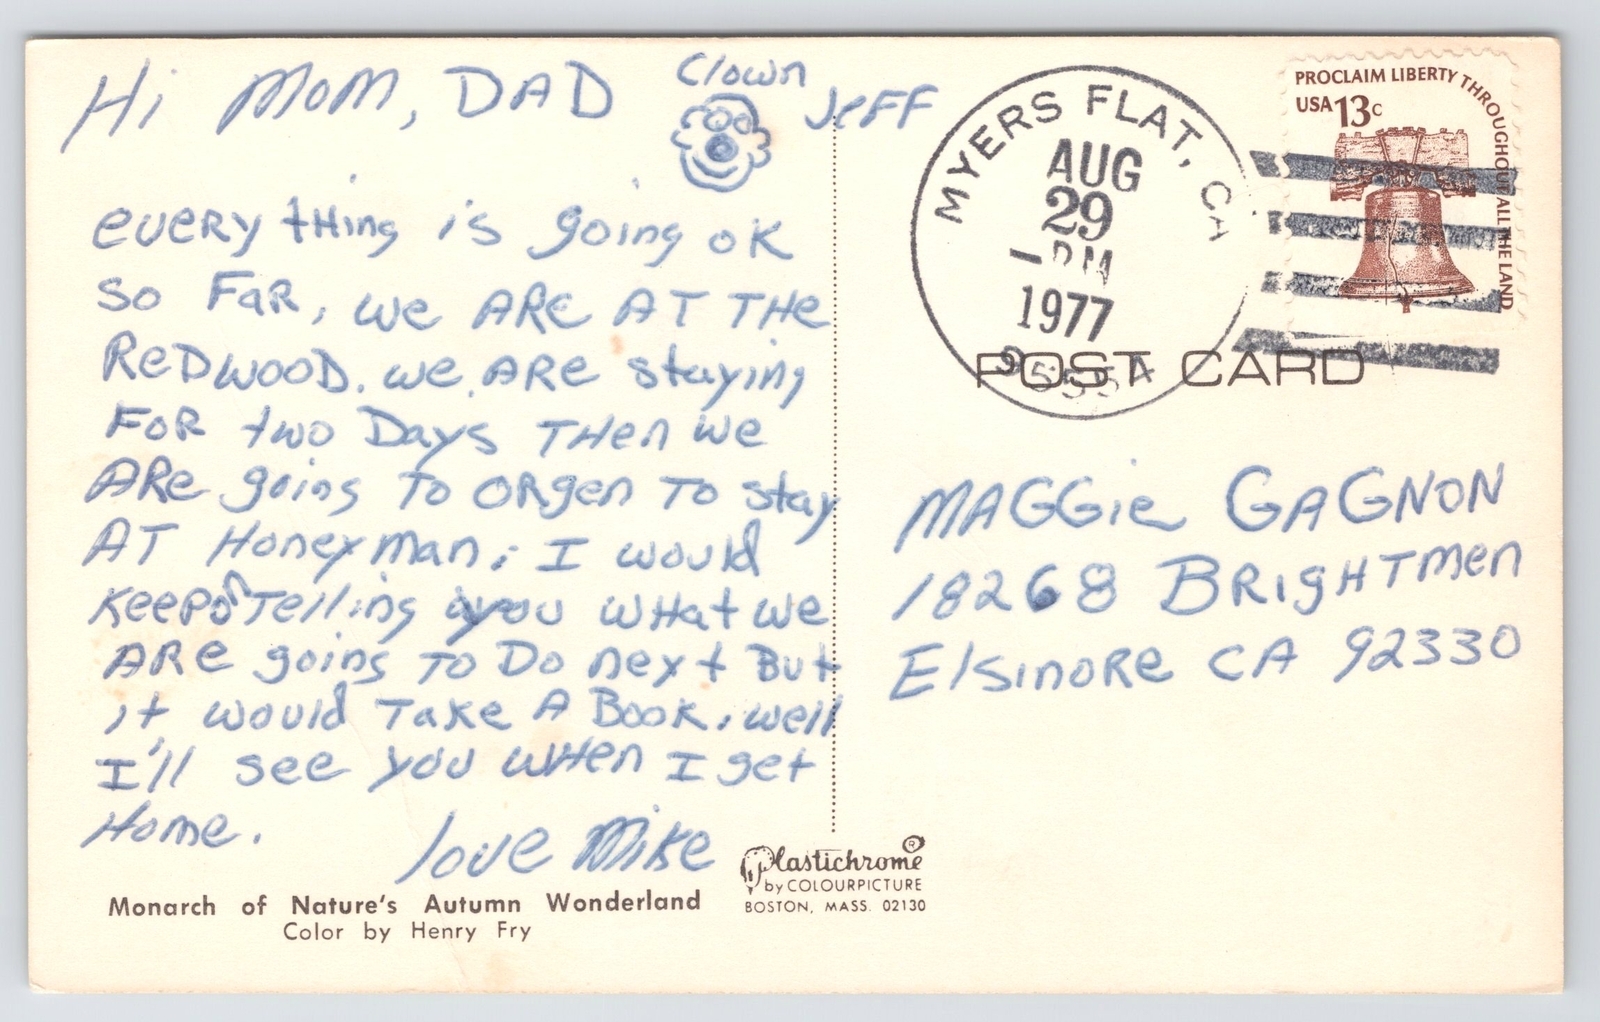 Hi Mom, DAD Clown JeFF
everY tHing is going oK
So FaR, we ARe AT THe
ReDwooD. we ARe staying
FoR two Days THen we
ARe going To ORgen To stay
AT Honeyman, I would
Keep on Telling you wHat we
ARe going To Do next But
it would Take A Book. well
I'll see you wHen I get
Home.
love Mike
Monarch of Nature's Autumn Wonderland
Color by Henry Fry
Plastichrome ®
by COLOURPICTURE
BOSTON, MASS. 02130
MYERS FLAT, CA
AUG
29
PM
1977
95554
PROCLAIM LIBERTY THROUGHOUT ALL THE LAND
USA 13c
POST CARD
MAGGie GAGNON
18268 BRigHTmen
ElsinoRe CA 92330